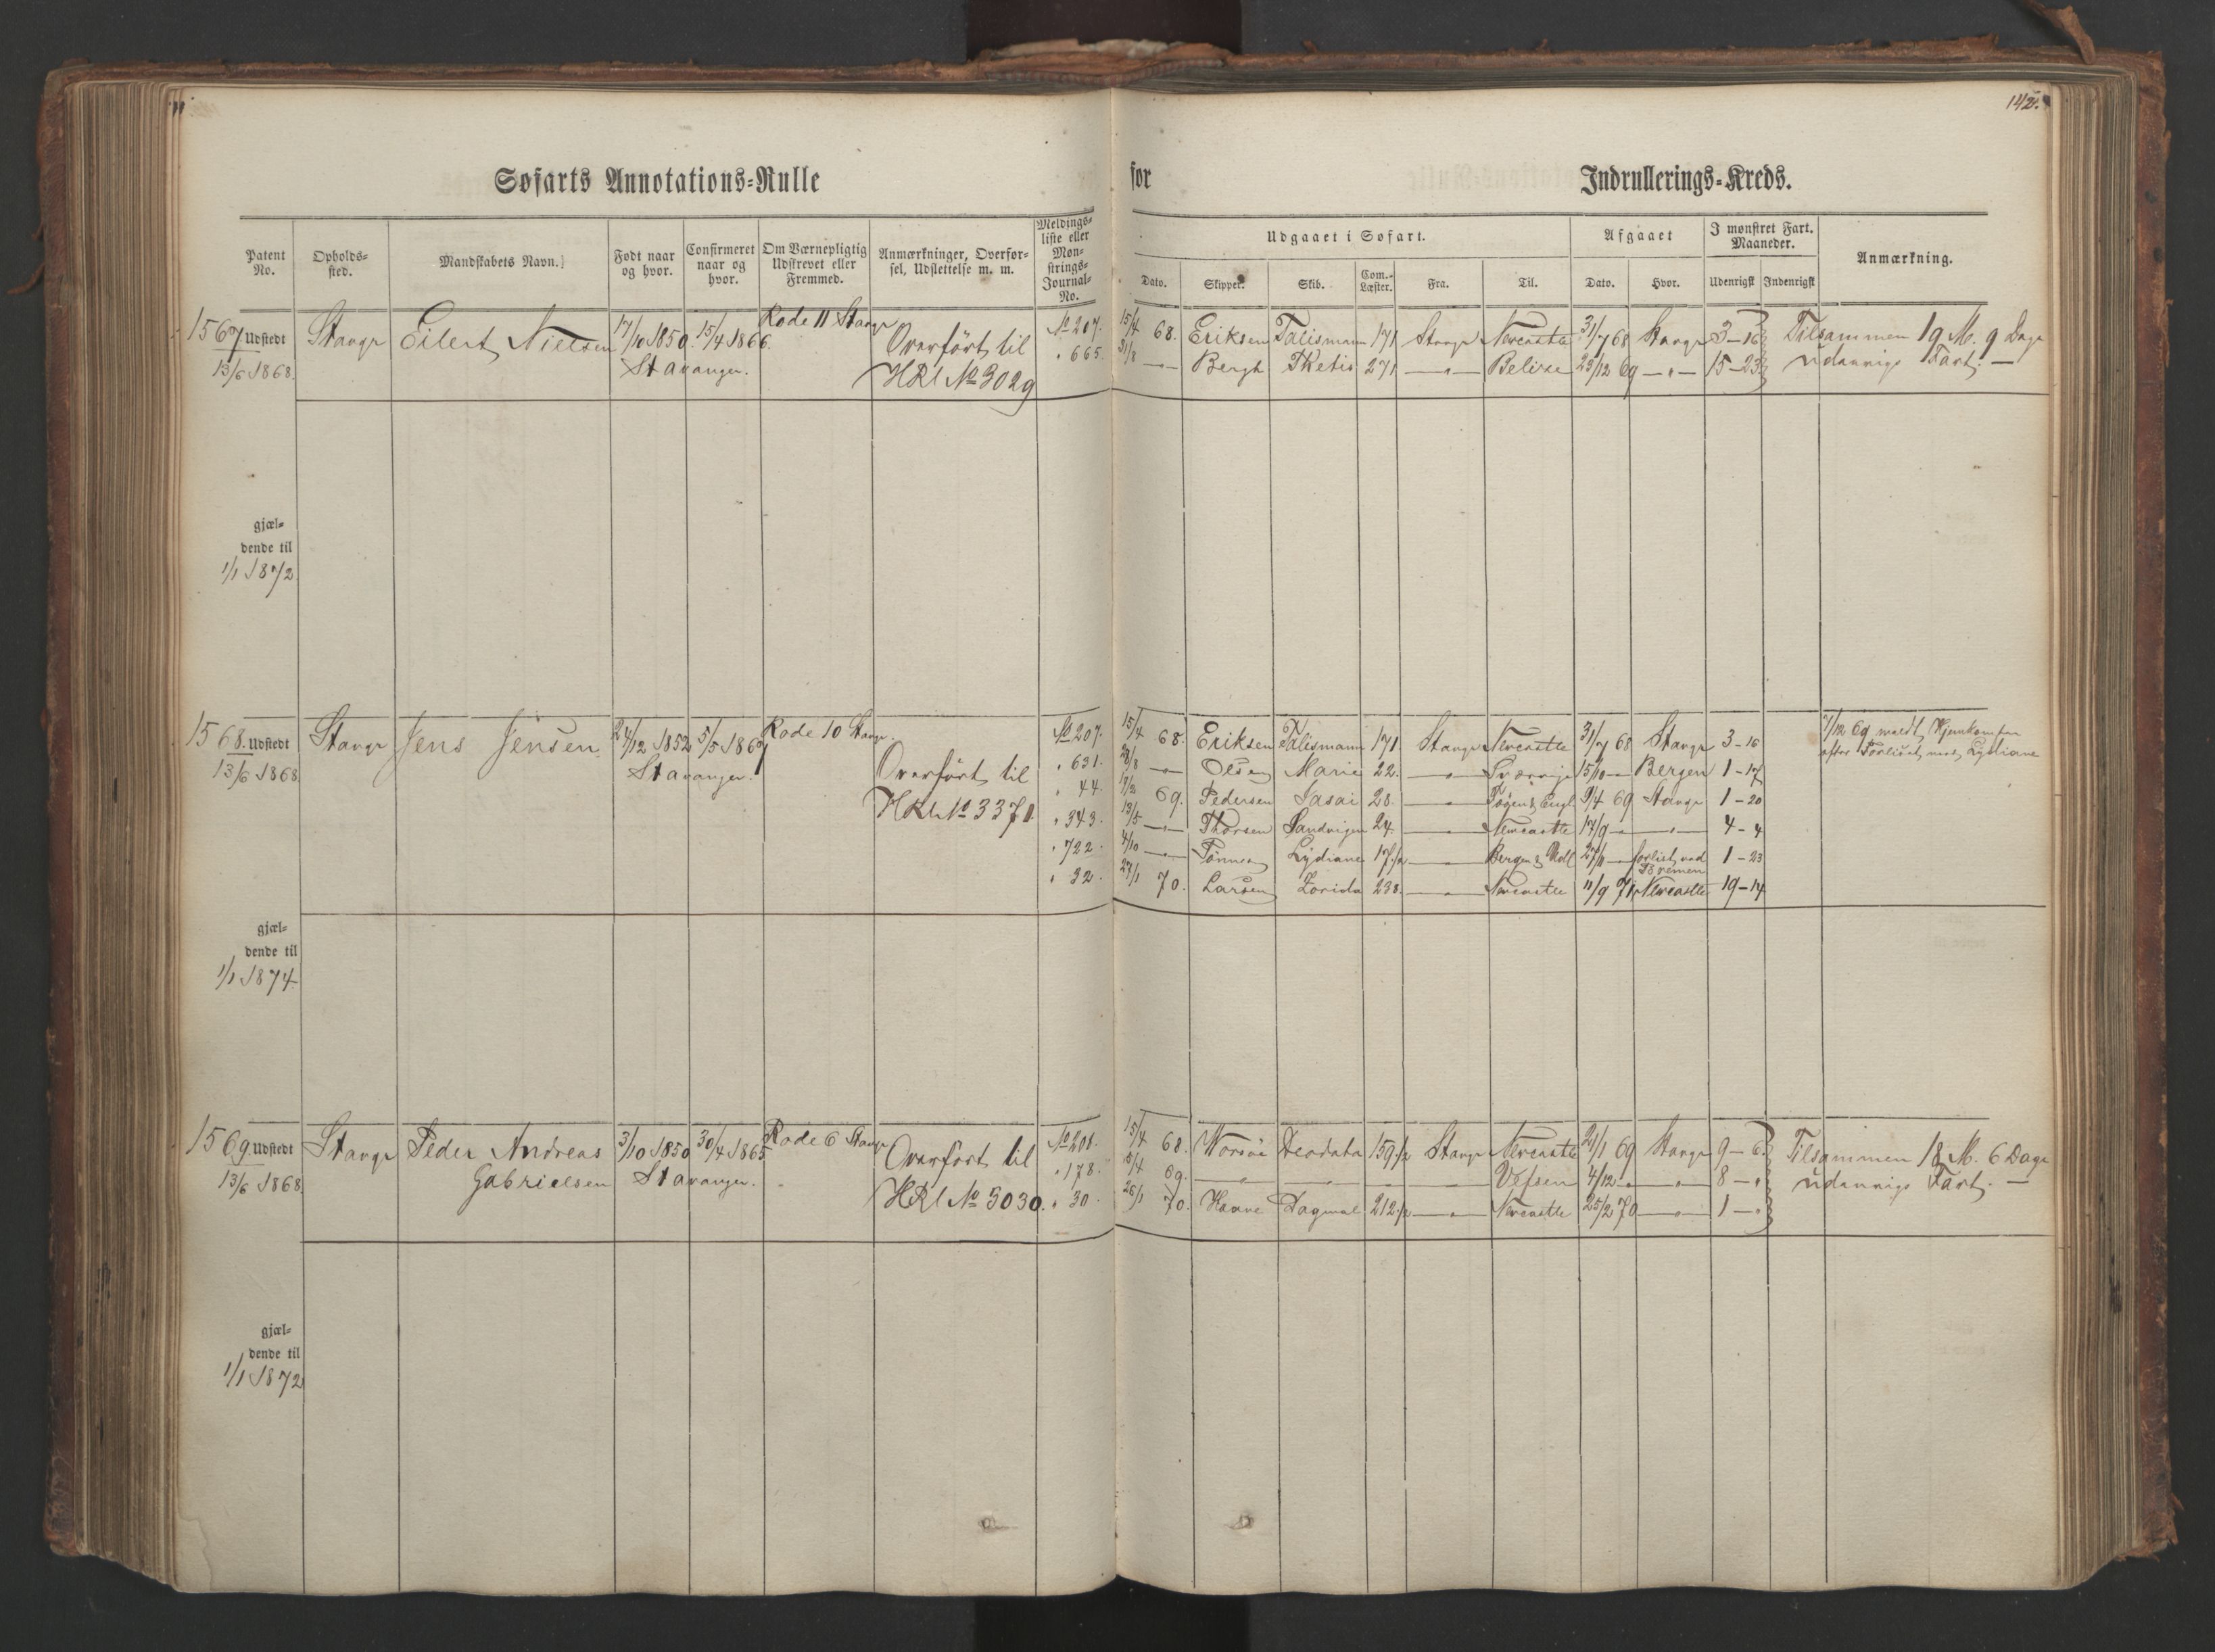 142.
Søfarts Annotations-Rulle for Indrullerings-Kreds.
Patent No. Opholds-sted. Mandskabets Navn. Født naar og hvor. Confirmeret naar og hvor. Om Værnepligtig Udskrevet eller Fremmed. Anmærkninger, Overførsel, Udslettelse m. m. Meldings-liste eller Møn-strings-Journal-No.
Udgaaet i Søfart. Afgaaet I mønstret Fart. Maaneder. Anmærkning.
Dato. Skipper. Skib. Com.-Læster. Fra. Til. Dato. Hvor. Udenrigsk Indenrigsk
1567 Udstedt Stavgr Eilert Nielsen 17/10 1850 15/4 1866 Rode 11 Stavgr Overført til No 207. 15/4 68. Eriksen Talisman 171 Stavgr Newcastle 31/7 68 Stavgr 3-16 Tilsammen 19 M. 9 Dage
13/6 1868. Stavanger. HRl No 3029 " 665. 31/8 —"— Bergh Thetis 271 —"— Belize 23/12 69 —"— 15-23 udenrigs Fart. —
gjæl-
dende til
1/1 1872
1568. Udstedt Stavgr Jens Jensen 24/12 1852 5/5 1867 Rode 10 Stavgr. No 207. 15/4 68. Eriksen Talismann 171. Stavgr Newcastle 31/7 68 Stavgr 3-16 7/12 69 meldt Hjemkommen
13/6 1868 Stavanger. Overført til " 631. 28/8 —"— Olsen Marie 22. —"— Sverrige 15/10 —"— Bergen 1-17 efter Forliset med Lydiane
HRl No 3371 " 44. 17/2 69. Pedersen 28. —"— & Engl 9/4 69 Stavgr 1-20
" 343. 13/5 —"— Thorsen Sandvigen 24. —"— Newcastle 17/9 —"— —"— 4-4
" 722. 4/10 —"— Tønnes Lydiane 17 1/2 —"— Bergen & 27/11 —"— forlist ved Bremen 1-23
" 32. 27/1 70. Larsen Zorida 238. —"— Newcastle 11/9 71. Newcastle 19-14
gjæl-
dende til
1/1 1874.
1569. Udstedt Stavgr Peder Andreas 3/10 1850 30/4 1865 Rode 6 Stavgr Overført til No 208. 15/4 68. Worsøe Deodata 159 1/2 Stavgr Newcastle 21/1 69 Stavgr 9-6 Tilsammen 18 M. 6 Dage
13/6 1868. Gabrielsen Stavanger. HRl No 3030. " 178. 5/4 69. —"— —"— —"— —"— Vefsen 4/12 —"— —"— 8-" udenrigs Fart. —
" 30. 26/1 70. Haave Dagmar 212 1/2 —"— Newcastle 25/2 70 —"— 1-"
gjæl-
dende til
1/1 1872